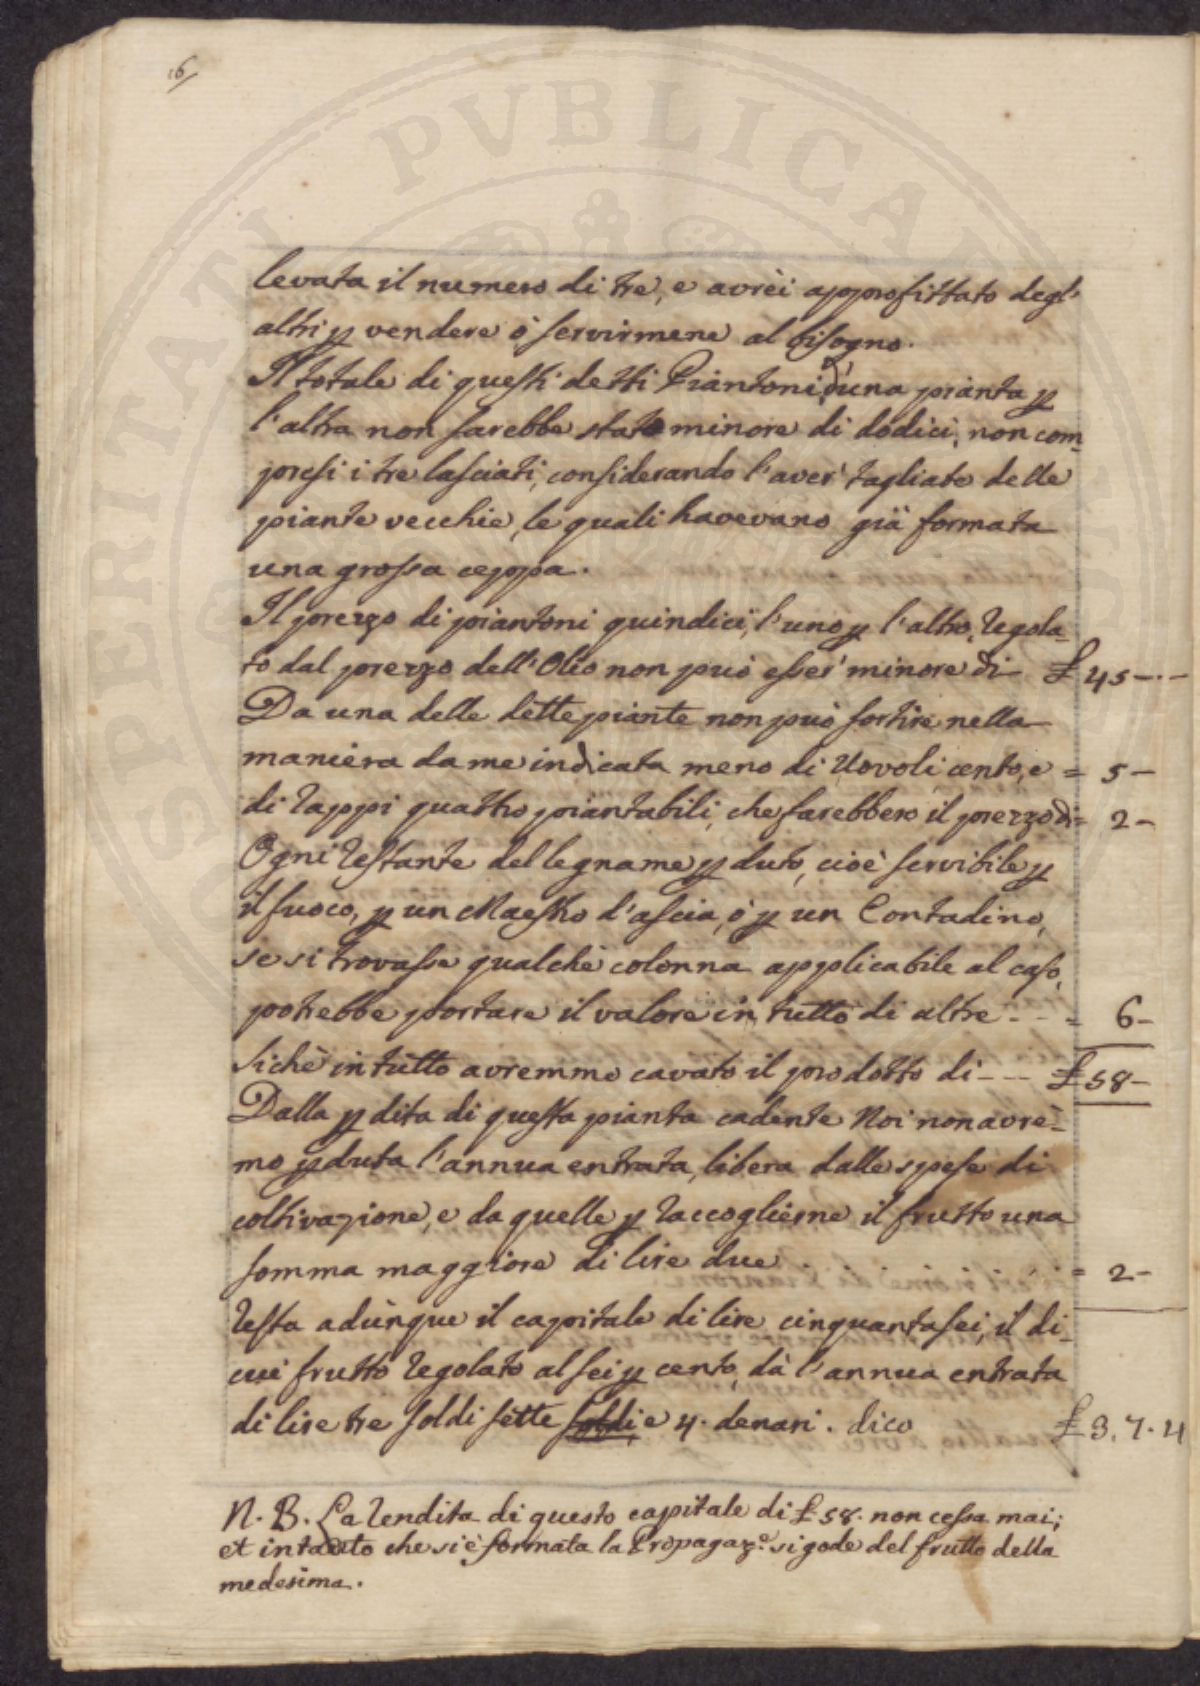 16
levata il numero di tre, e avrèi approfittato degl'
altri p vendere ò servirmene al bisogno.
Il totale di questi detti Piantoni, d'una pianta p
l'altra non sarebbe stato minore di dodici, non com-
presi i tre lasciati, considerando l'aver' tagliato delle
piante vecchie, le quali havevano già formata
una grossa ceppa.
Il prezzo di piantoni quindici, l'uno p l'altro, regola-
to dal prezzo dell'Olio non può esser' minore di £ 45-.-
Da una delle dette piante non può sortire nella
maniera da me indicata meno di Uovoli cento, e = 5-
di rappi quattro piantabili, che sarebbero il prezzo di = 2-
Ogni restante del legname p duto, cioè servibile p
il fuoco, p un Maestro d'ascia, ò p un Contadino,
se si trovasse qualchè colonna applicabile al caso,
potrebbe portare il valore in tutto di altre - - = 6-
Sichè in tutto avremmo cavato il prodotto di - - - £ 58-
Dalla p dita di questa pianta cadente Noi non avre-
mo p duta l'annua entrata, libera dalle spese di
coltivazione, e da quelle p raccoglierne il frutto una
somma maggiore di lire due . . . . . = 2-
Resta adunque il capitale di lire cinquantasei, il di
cui frutto regolato al sei p cento, dà l'annua entrata
di lire tre soldi sette soldi e 4. denari. dico £ 3. 7. 4
N. B. La rendita di questo capitale di £ 58. non cessa mai;
et intanto che si è formata la Propagaz.e si gode del frutto della
medesima.
PROSPERITATI PUBLICAE